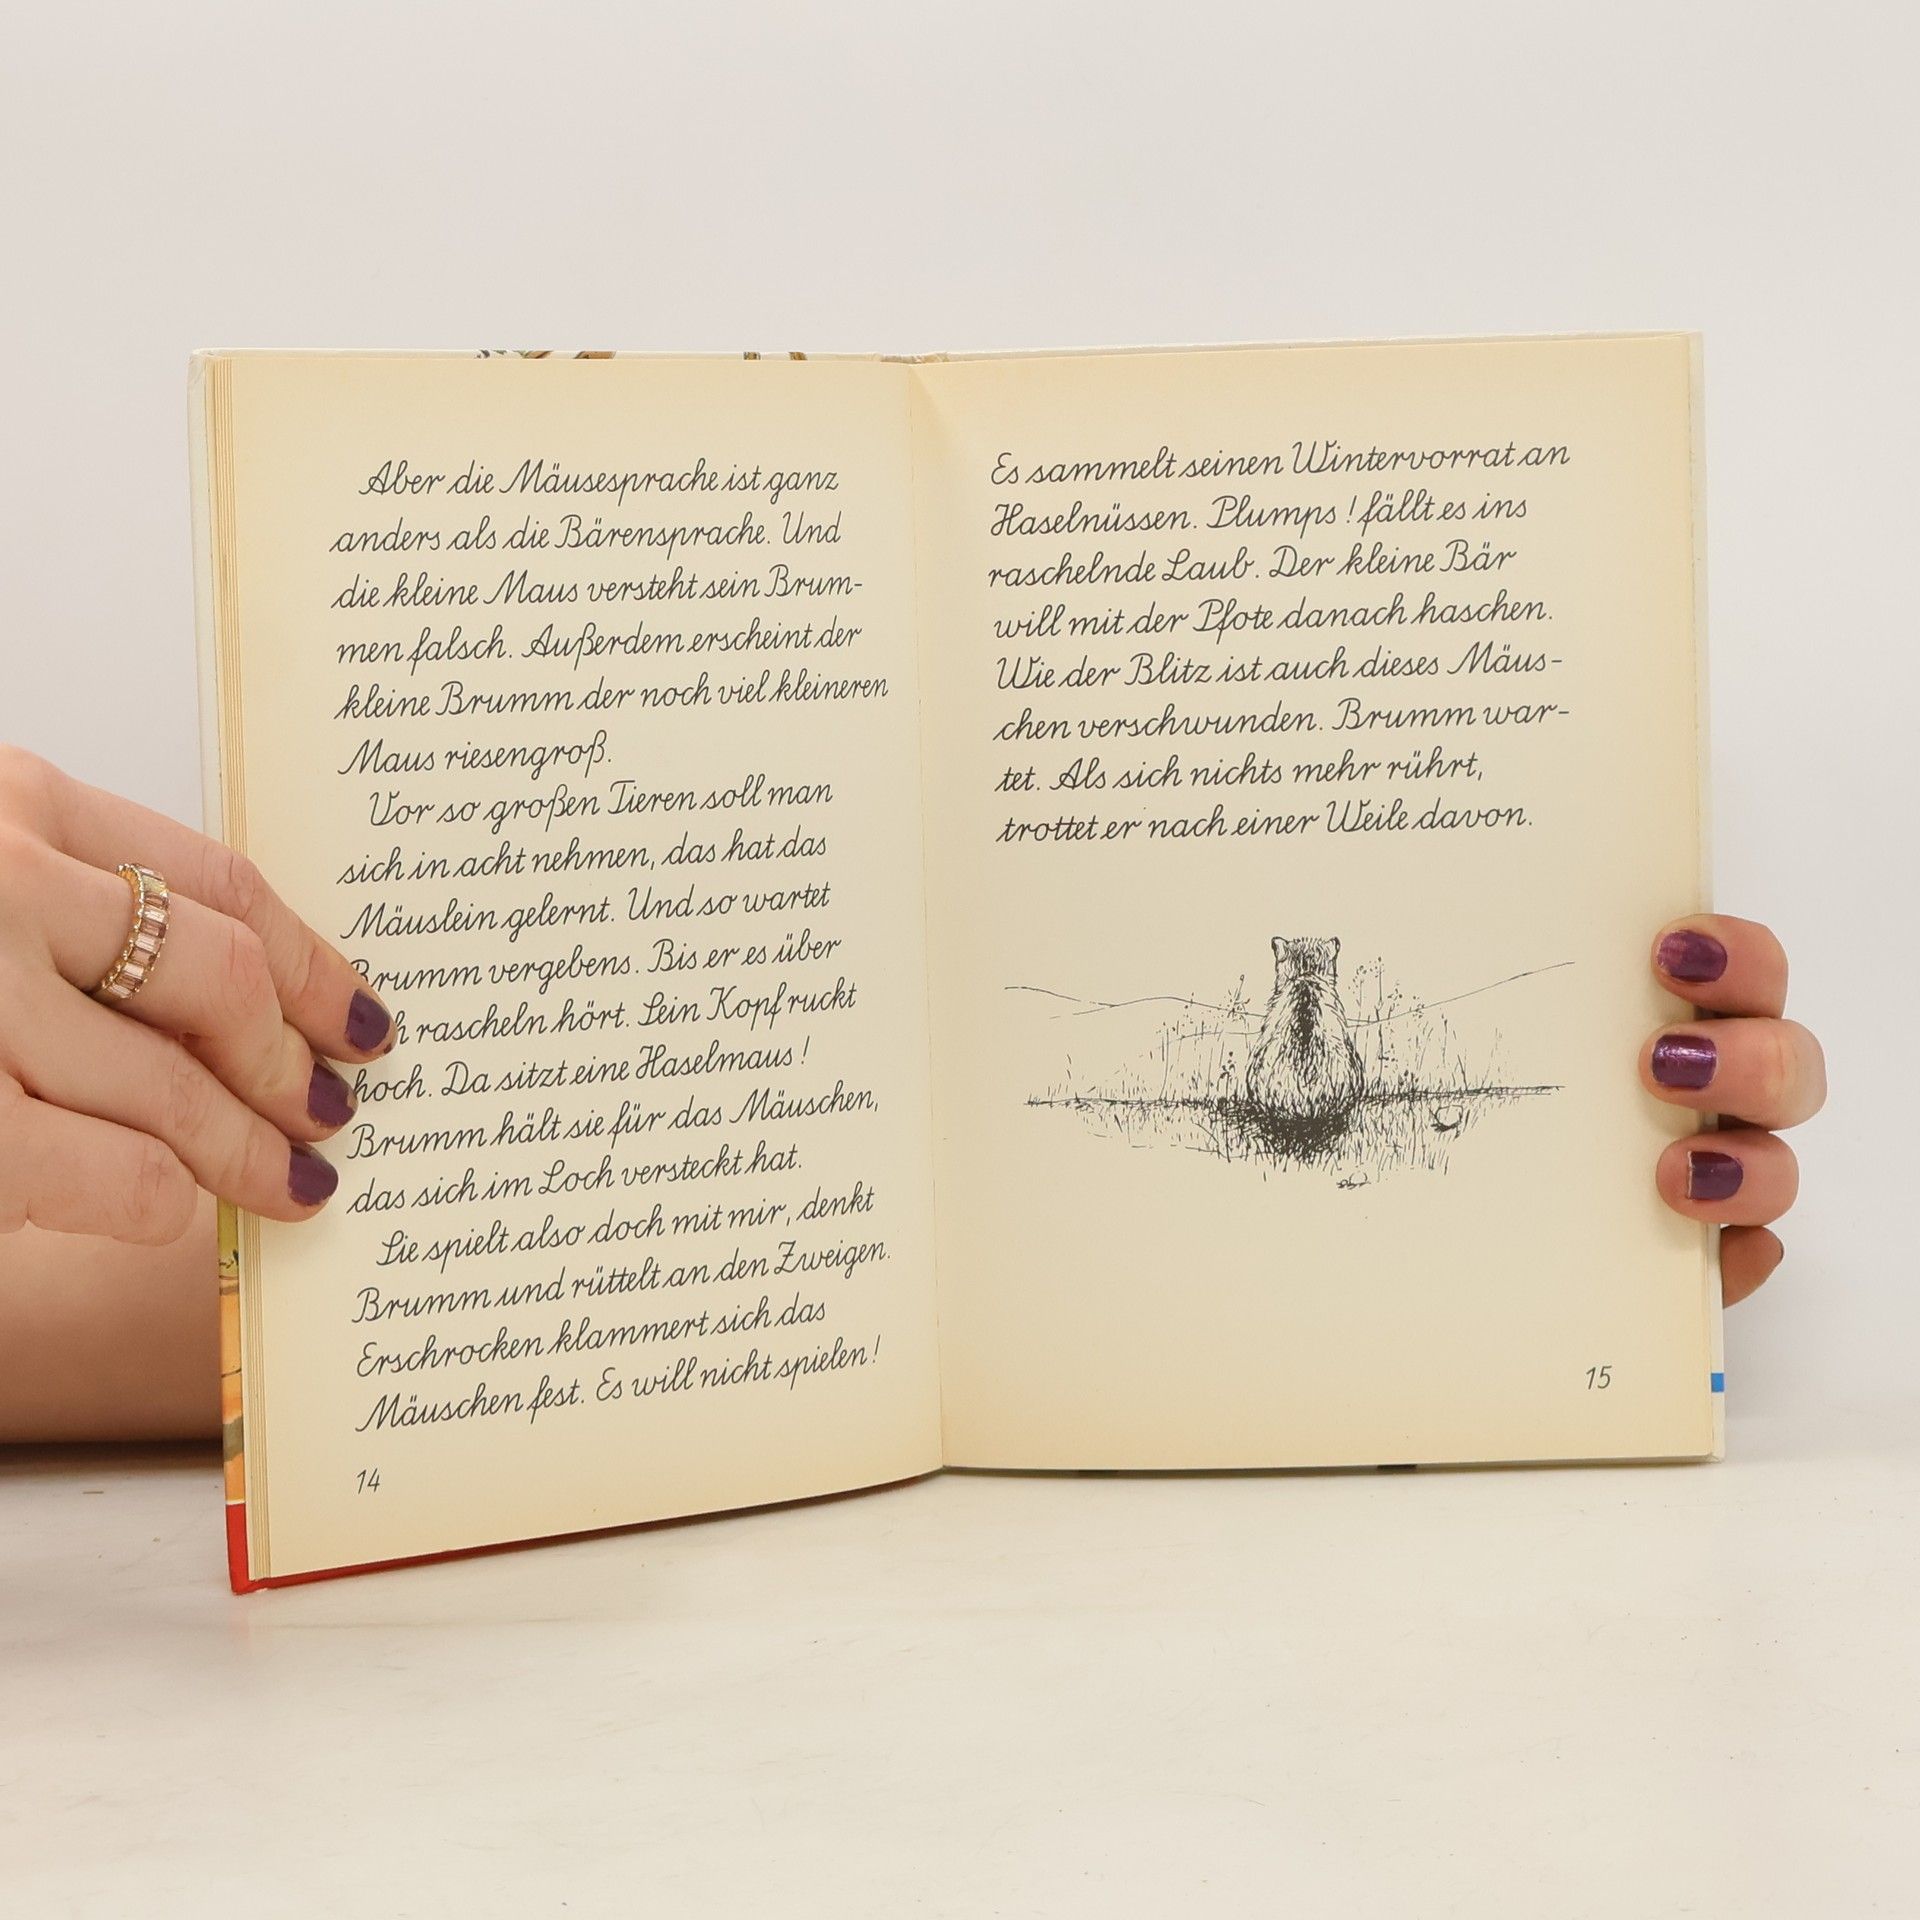 Aber die Mäusesprache ist ganz
anders als die Bärensprache. Und
die kleine Maus versteht sein Brum-
men falsch. Außerdem erscheint der
kleine Brumm der noch viel kleineren
Maus riesengroß.
Vor so großen Tieren soll man
sich in acht nehmen, das hat das
Mäuslein gelernt. Und so wartet
Brumm vergebens. Bis er es über
rascheln hört. Sein Kopf ruckt
hoch. Da sitzt eine Haselmaus!
Brumm hält sie für das Mäuschen,
das sich im Loch versteckt hat.
Sie spielt also doch mit mir, denkt
Brumm und rüttelt an den Zweigen.
Erschrocken klammert sich das
Mäuschen fest. Es will nicht spielen!
14
Es sammelt seinen Wintervorrat an
Haselnüssen. Plumps! fällt es ins
raschelnde Laub. Der kleine Bär
will mit der Pfote danach haschen.
Wie der Blitz ist auch dieses Mäus-
chen verschwunden. Brumm war-
tet. Als sich nichts mehr rührt,
trottet er nach einer Weile davon.
15